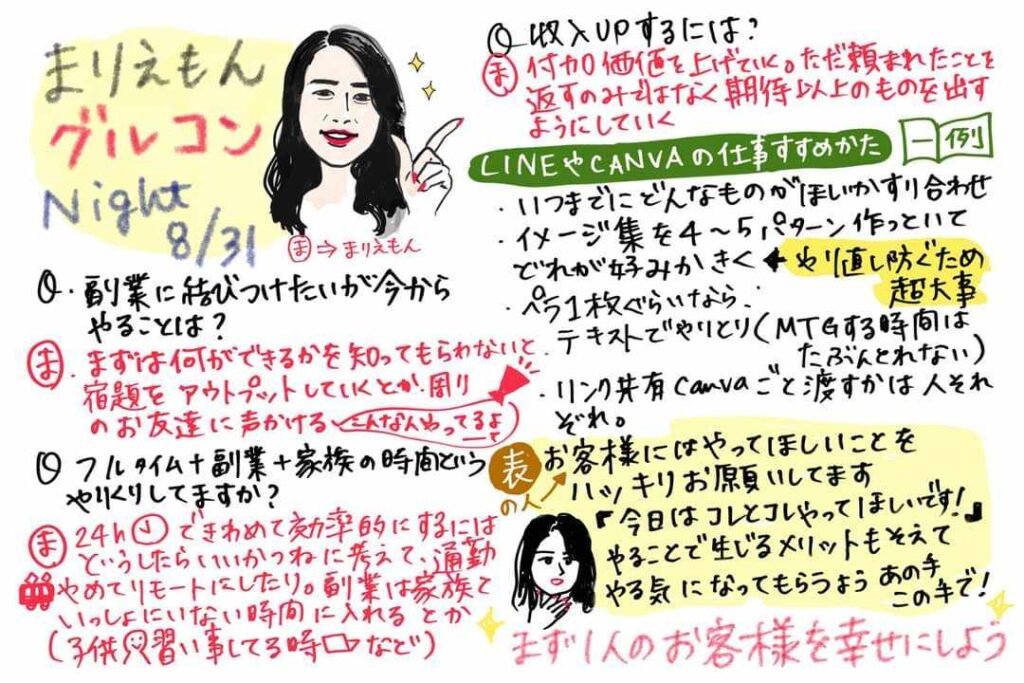 まりえもん
グルコン
Night
8/31
ま⇒まりえもん
Q. 副業に結びつけたいが今から
やることは?
ま. まずは何ができるかを知ってもらわないと
宿題をアウトプットしていくとか、周り
のお友達に声かける こんなんやってるよて
Q フルタイム+副業+家族の時間という
やりくりしてますか?
ま 24h できわめて効率的にするには
どうしたらいいかつねに考えて、通勤
やめてリモートにしたり。副業は家族と
いっしょにいない時間に入れる とか
(子供 習い事してる時 など)
Q 収入UPするには?
ま 付加価値を上げていく。ただ頼まれたことを
返すのみではなく期待以上のものを出す
ようにしていく
LINEやCANVAの仕事すすめかた
一例
・いつまでにどんなものがほしいかすり合わせ
・イメージ集を4〜5パターン作っといて
どれが好みかきく ← やり直し防ぐため
超大事
・ペラ1枚ぐらいなら
テキストでやりとり(MTGする時間は
たぶんとれない)
・リンク共有canvaごと渡すかは人それ
ぞれ。
表の人
お客様にはやってほしいことを
ハッキリお願いしてます
『今日はコレとコレやってほしいです!』
やることで生じるメリットもそえて
やる気になってもらうよう あの手
この手で!
まず1人のお客様を幸せにしよう